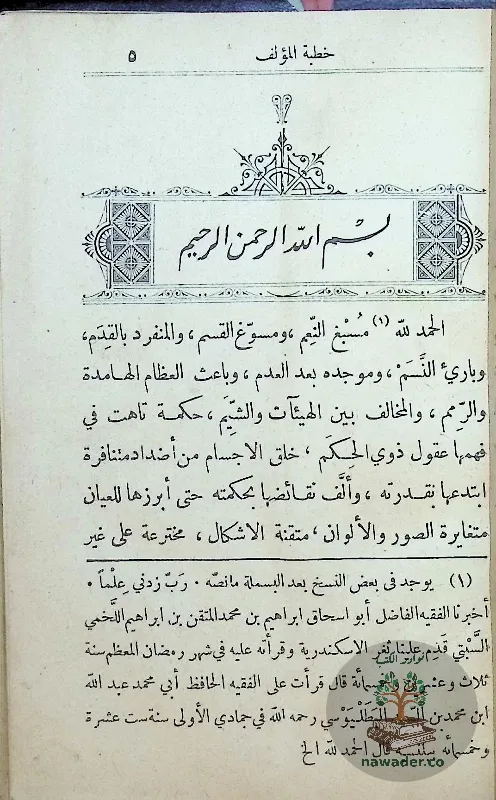 خطبة المؤلف ٥
بسم الله الرحمن الرحيم
الحمد لله (١) مُسْبغ النِّعم ، ومسوّغ القسم ، والمنفرد بالقِدَم ،
وبارئ النَّسَمْ ، وموجده بعد العدم ، وباعث العظام الهامدة
والرِّمم ، والمخالف بين الهيئآت والشِّيَم ، حكمة تاهت في
فهمها عقول ذوي الحِكَم ، خلق الاجسام من أضداد متنافرة
ابتدعها بقدرته ، وألَّف نقائضها بحكمته حتى أبرزها للعيان
متغايرة الصور والألوان ، متقنة الاشكال ، مخترعة على غير
(١) يوجد فى بعض النسخ بعد البسملة مانصّه . رَبّ زدني عِلْماً .
أخبرنا الفقيه الفاضل أبو اسحاق ابراهيم بن محمد المتقن بن ابراهيم اللَّخمي
السَّبْتي قَدِم علينا ثغر الاسكندرية وقرأته عليه في شهر رمضان المعظم سنة
ثلاث وعشرين وخمسمائة قال قرأت على الفقيه الحافظ أبي محمد عبد الله
ابن محمد بن السيد البَطَلْيَوْسي رحمه الله في جمادي الأولى سنة ست عشرة
وخمسمائه قال الحمد لله الخ
نوادر الكتب
nawader.co